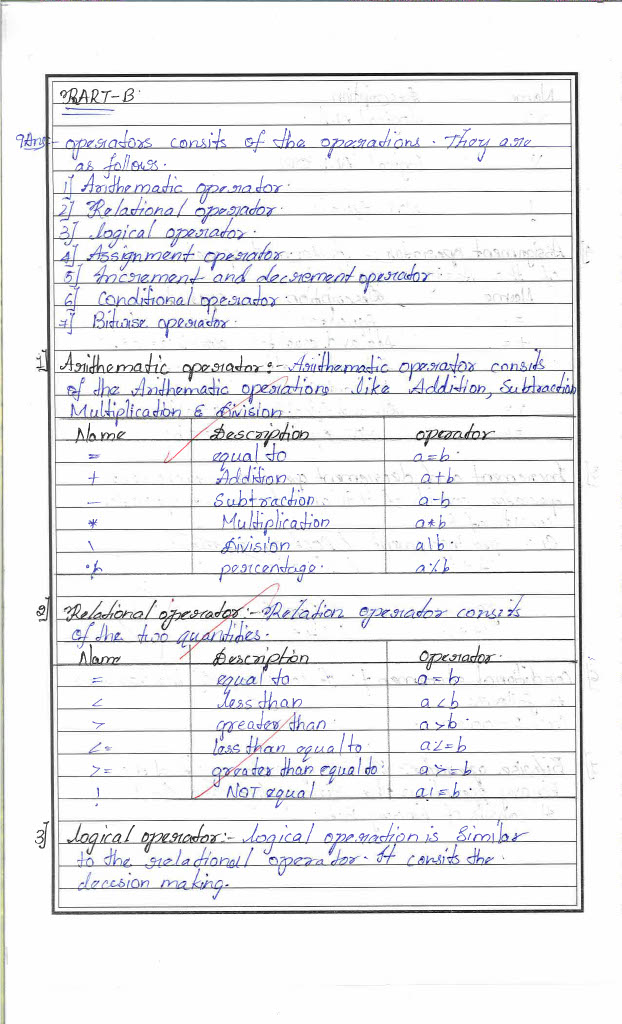 PART-B
9Ans:- operators consits of the operations. They are
as follows.
1] Arithematic operator.
2] Relational operator.
3] logical operator.
4] Assignment operator.
5] Increment and decrement operator.
6] conditional operator.
7] Bitwise operator.
1] Arithematic operator:- Arithematic operator consits
of the Arithematic operations like Addition, Subtraction
Multiplication & Division
Name Description operator
= equal to a=b.
+ Addition a+b
- Subtraction a-b
* Multiplication a*b
\ Division a\b.
% percentage. a%b
2] Relational operator:- Relation operator consits
of the two quantities.
Name Description Operator.
= equal to a=b
< less than a<b
> greater than a>b.
<= less than equal to a<=b
>= greater than equal to a>=b
! NOT equal a!=b.
3] logical operator:- logical operation is Similar
to the relational operator. It consits the
decesion making.